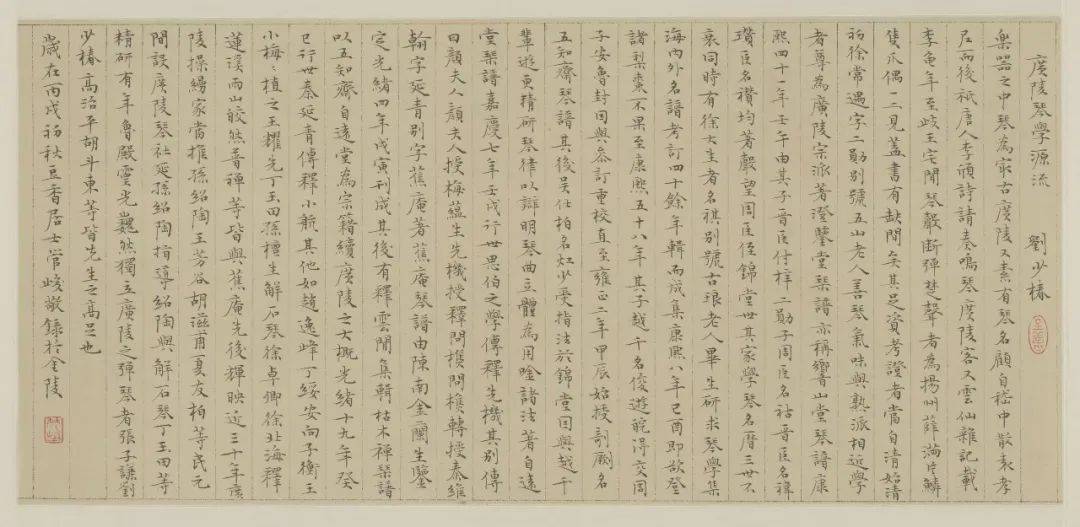 廣陵琴學源流 劉少椿
樂器之中琴為最古廣陵又素有琴名顧自嵇中散袁孝
尼而後祇唐人李頎詩請奏鳴琴廣陵客又雲仙雜記載
李龜年至歧王宅聞琴聲斷彈楚聲者為揚州薛滿片鱗
隻爪偶一二見蓋書有缺間矣其足資考證者當自清始清
初徐常遇字二勛別號五山老人善琴氣味與熟派相近學
者尊為廣陵宗派著澄鑒堂琴譜亦稱響山堂琴譜康
熙四十一年壬午由其子晉臣付梓二勛子周臣名祜晉臣名禕
瓚臣名禶均著聲望周臣侄錦堂世其家學琴名曆三世不
衰同時有徐大生者名祺別號古琅老人畢生研求琴學集
海內外名譜考訂四十餘年輯而成集康熙八年己酉即欲登
諸梨棗不果至康熙五十八年其子越千名俊遊皖得交周
子安魯封因與參訂重校直至雍正二年甲辰始授剞劂名
五知齋琴譜其後吳仕柏名灴少受指法於錦堂因與越千
輩遊更精研琴律以辯明琴曲主體為用唫諸法著自遠
堂琴譜嘉慶七年壬戌行世思伯之學傳釋先機其別傳
曰顏夫人顏夫人授梅蘊生先機授釋問樵問樵轉授秦維
翰字延青別字蕉庵著蕉庵琴譜由陳南金蘭生鑒
定光緒四年戊寅刊成其後有釋雲閒集輯枯木禪琴譜
以五知齋自遠堂為宗籍續廣陵之大概光緒十九年癸
巳行世秦延青傳釋小航其他如趙逸峰丁綏安向子衡王
小梅々植之王耀先丁玉田孫檀生解石琴徐卓卿徐北海釋
蓮溪而山皎然普禪等皆與蕉庵先後輝映近三十年廣
陵操縵家當推孫紹陶王芳谷胡滋甫夏友柏等民元
間設廣陵琴社延孫紹陶指導紹陶與解石琴丁玉田等
精研有年魯殿靈光巍然獨立廣陵之彈琴者張子謙劉
少椿高治平胡斗東等皆先生之高足也
歲在丙戌初秋豆香居士管峻敬錄於金陵